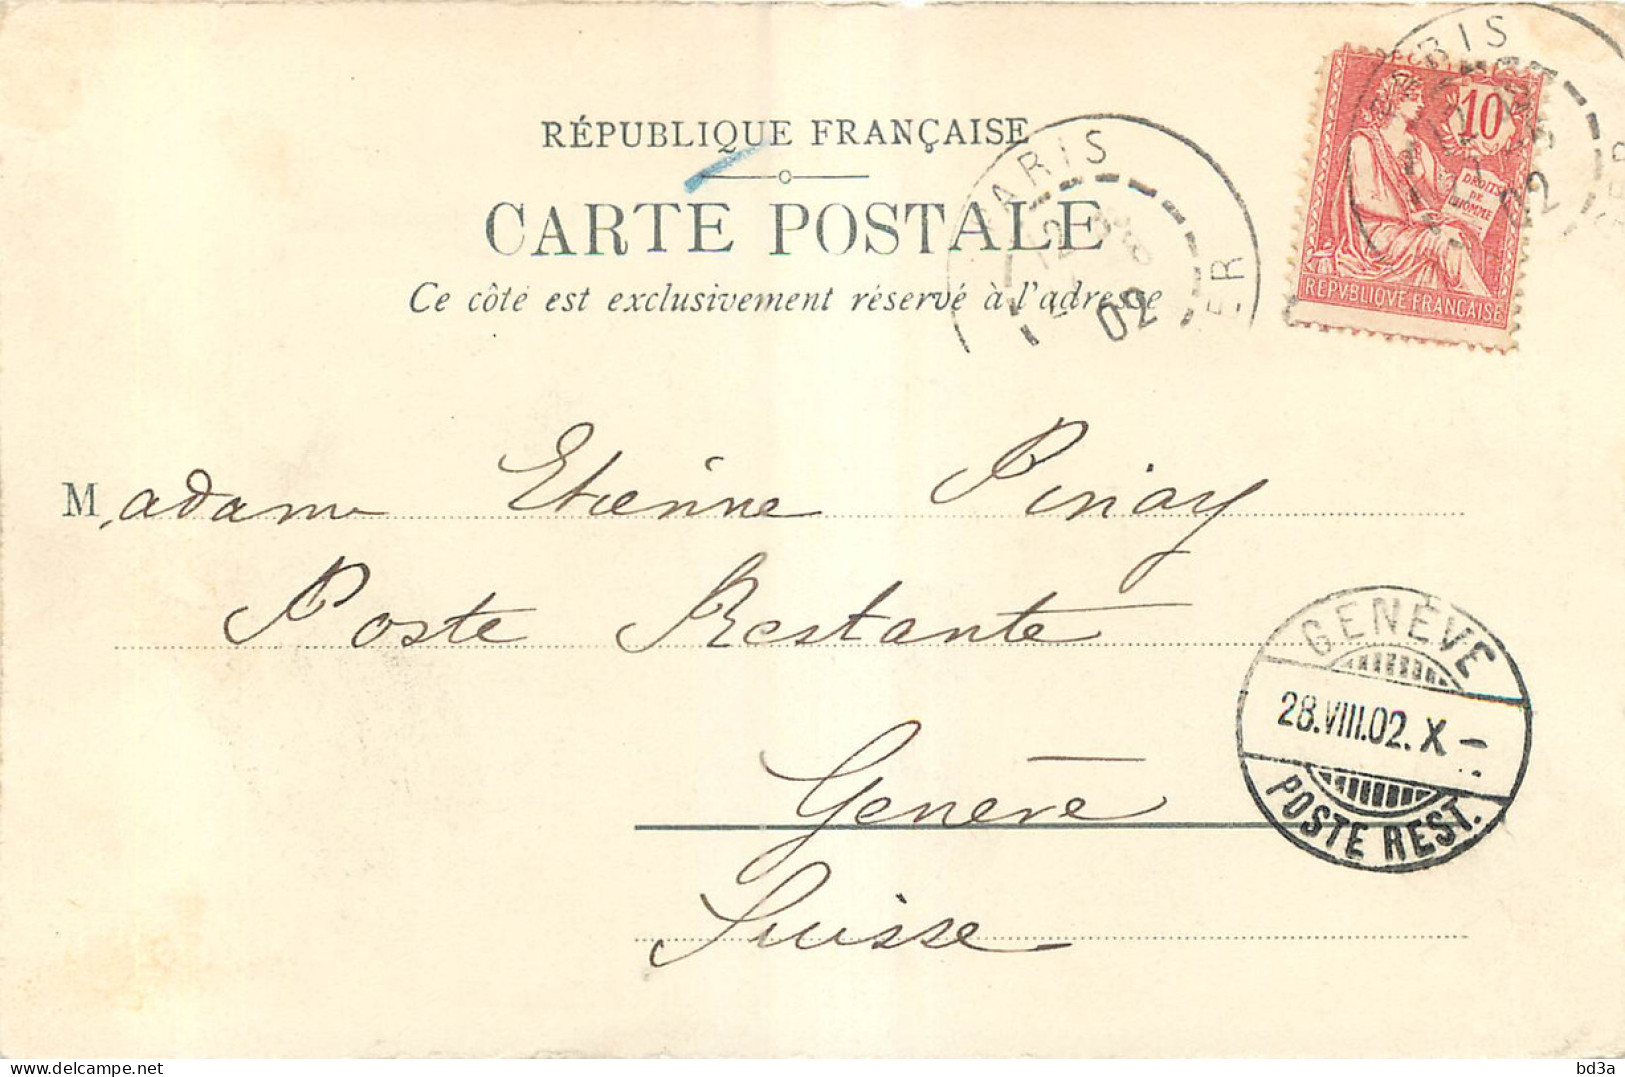 RÉPUBLIQUE FRANÇAISE
CARTE POSTALE
Ce côté est exclusivement réservé à l'adresse
PARIS
02
PARIS
02
POSTES
10
DROITS
DE
L'HOMME
REPVBLIQVE FRANÇAISE
Madame Etienne Pinay
Poste Restante
Genève
Suisse
GENÈVE
28.VIII.02. X
POSTE REST.
delcampe.net
bd3a